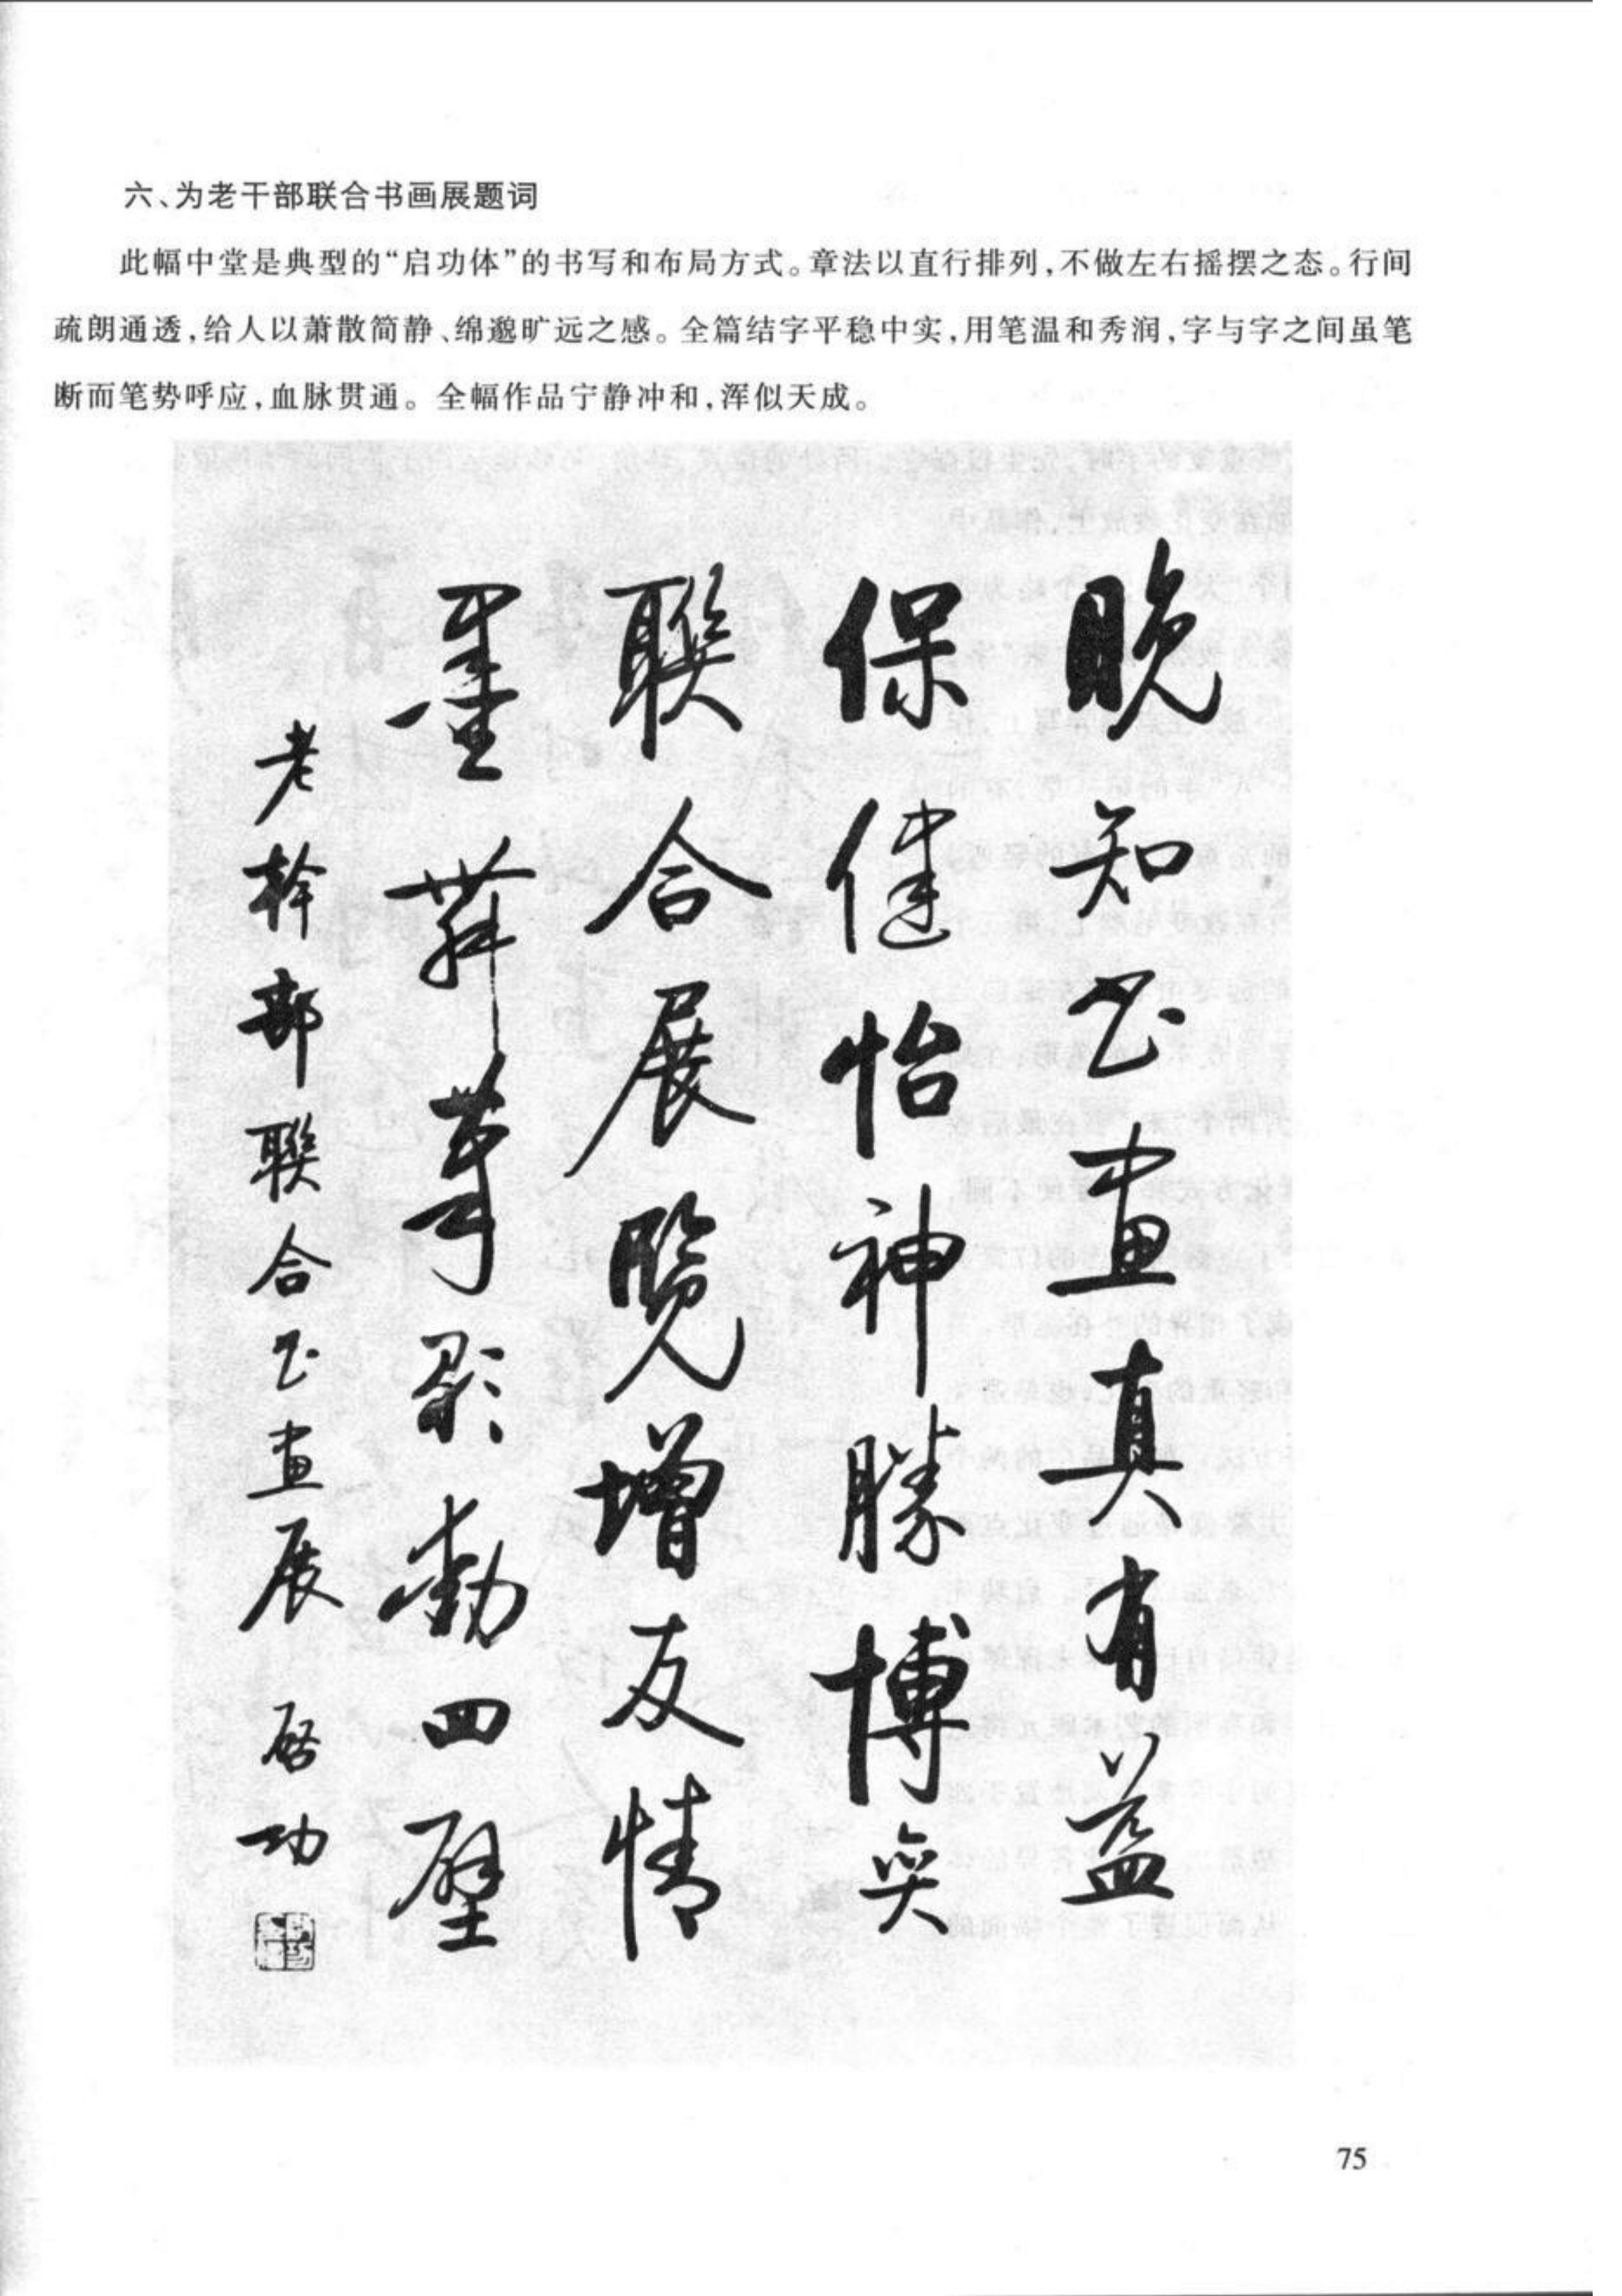 六、为老干部联合书画展题词
此幅中堂是典型的“启功体”的书写和布局方式。章法以直行排列，不做左右摇摆之态。行间
疏朗通透，给人以萧散简静、绵邈旷远之感。全篇结字平稳中实，用笔温和秀润，字与字之间虽笔
断而笔势呼应，血脉贯通。全幅作品宁静冲和，浑似天成。
晚知书畫真有益
保健怡神勝博奕
聯合展覽增友情
墨舞筆歌動四壁
老幹部聯合书畫展 启功
75